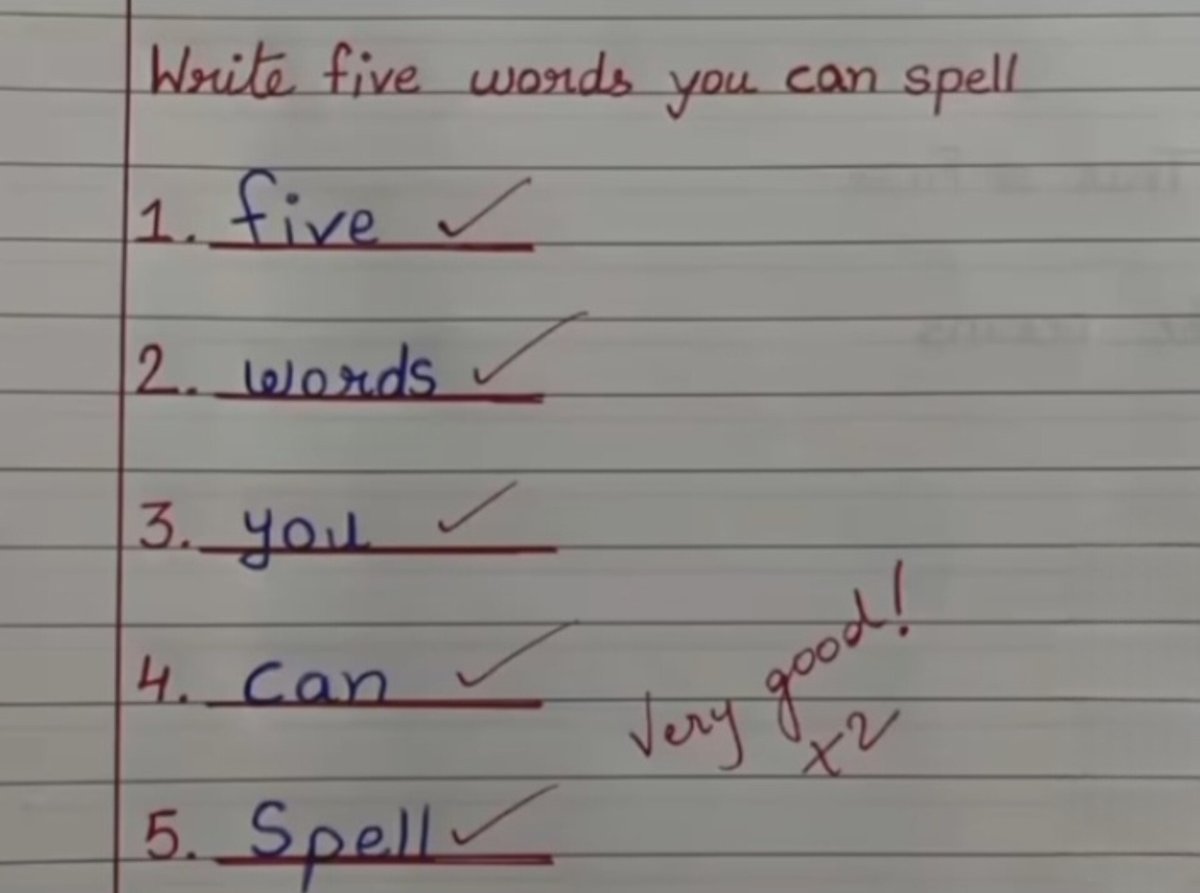 Write five words you can spell
1. five ✓
2. words ✓
3. you ✓
4. can ✓
Very good!
x2
5. Spell ✓